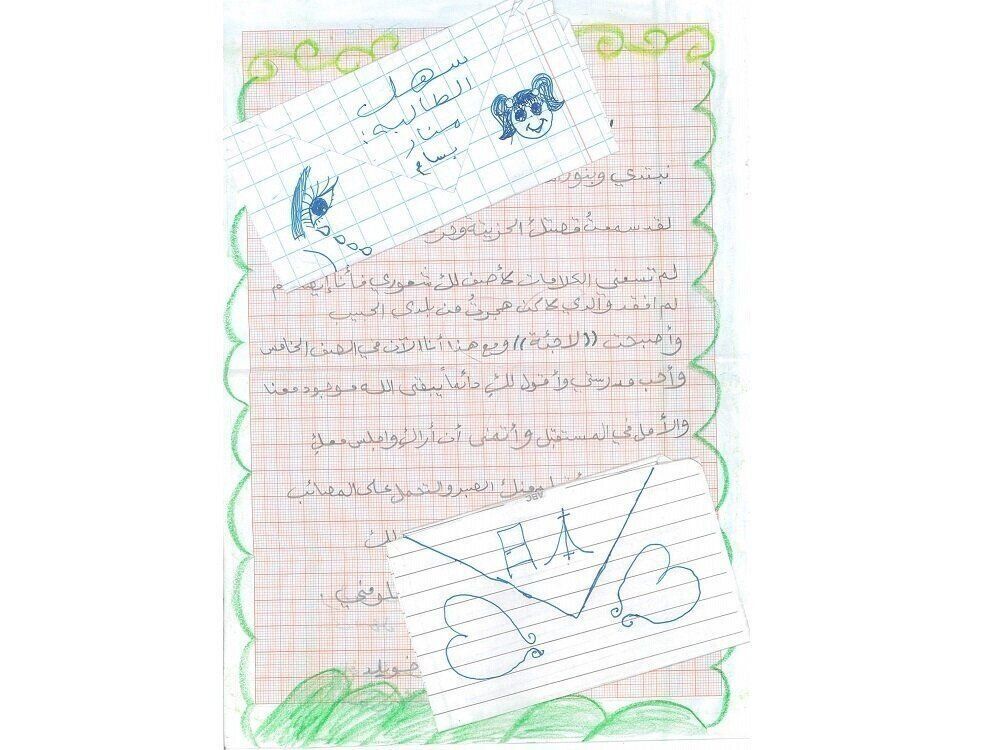 سهل
الطالبة:
منار
بسام
نبتدي وبنور
لقد سمعتُ قصتك الحزينة
لم تسعني الكلامات لأصف لك شعوري فأنا إيضـ م
لم افقد والدي لاكن هجرتُ من بلدي الحبيب
وأصبحت ((لاجئة)) ومع هذا أنا الآن في الصف الخامس
وأحب مدرستي وأقول لكِ دائماً يبقى الله موجود معنا
والأمل في المستقبل وأتمنى أن أراكِ واجلس معكِ
منك الصبر والتحمل على المصائب
لك